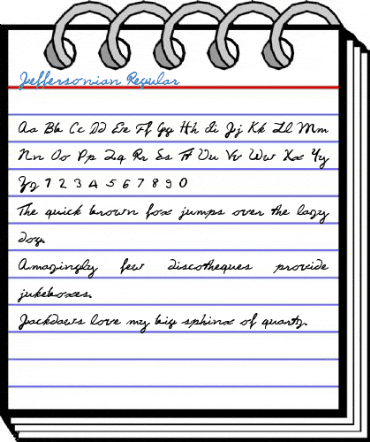 Jeffersonian Regular
Aa Bb Cc Dd Ee Ff Gg Hh Ii Jj Kk Ll Mm
Nn Oo Pp Qq Rr Ss Tt Uu Vv Ww Xx Yy
Zz 1 2 3 4 5 6 7 8 9 0
The quick brown fox jumps over the lazy
dog.
Amazingly few discotheques provide
jukeboxes.
Jackdaws love my big sphinx of quartz.